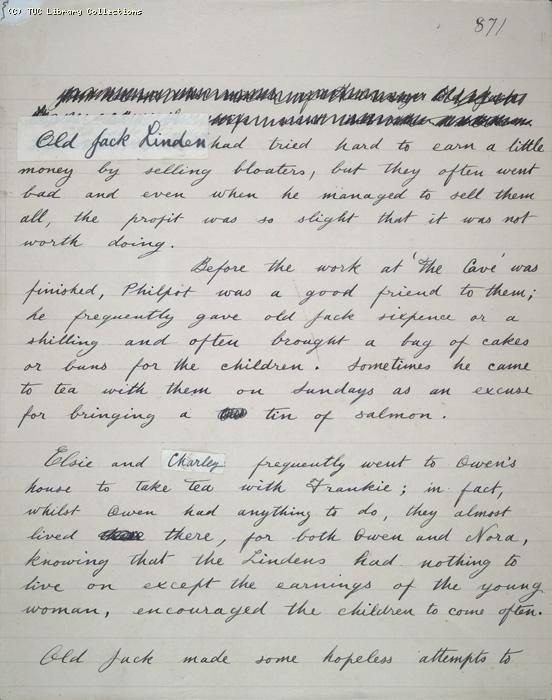 (C) TUC Library Collections
871
Old Jack Linden had tried hard to earn a little
money by selling bloaters, but they often went
bad and even when he managed to sell them
all, the profit was so slight that it was not
worth doing.
Before the work at 'The Cave' was
finished, Philpot was a good friend to them;
he frequently gave old Jack sixpence or a
shilling and often brought a bag of cakes
or buns for the children. Sometimes he came
to tea with them on Sundays as an excuse
for bringing a tin of salmon.
Elsie and Charley frequently went to Owen's
house to take tea with Frankie; in fact,
whilst Owen had anything to do, they almost
lived there, for both Owen and Nora,
knowing that the Lindens had nothing to
live on except the earnings of the young
woman, encouraged the children to come often.
Old Jack made some hopeless attempts to